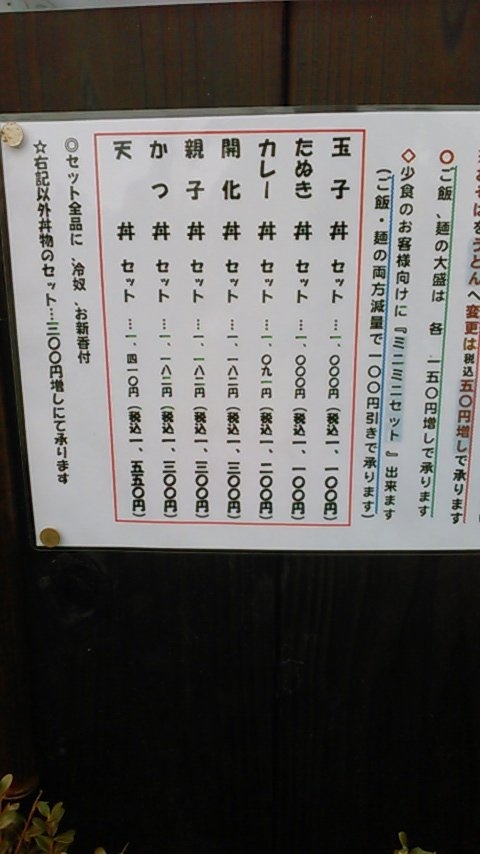 そばをうどんへ変更は税込五〇円増しで承ります
〇ご飯、麺の大盛は 各 一五〇円増しで承ります
◇少食のお客様向けに『ミニミニセット』出来ます
(ご飯・麺の両方減量で一〇〇円引きで承ります)
玉子丼 セット…一、〇〇〇円(税込一、一〇〇円)
たぬき丼 セット…一、〇〇〇円(税込一、一〇〇円)
カレー丼 セット…一、〇九一円(税込一、二〇〇円)
開化丼 セット…一、一八二円(税込一、三〇〇円)
親子丼 セット…一、一八二円(税込一、三〇〇円)
かつ丼 セット…一、一八二円(税込一、三〇〇円)
天丼 セット…一、四一〇円(税込一、五五〇円)
◎セット全品に、冷奴、お新香付
☆右記以外丼物のセット…三〇〇円増しにて承ります